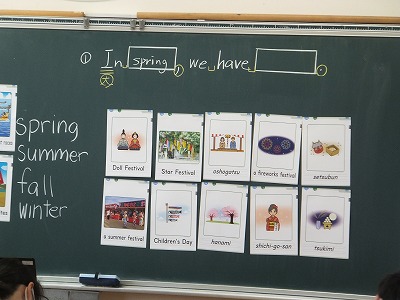 ① In spring, we have .
大
spring
summer
fall
winter
Doll Festival
Star Festival
oshogatsu
a fireworks festival
setsubun
a summer festival
Children's Day
hanami
shichi-go-san
tsukimi